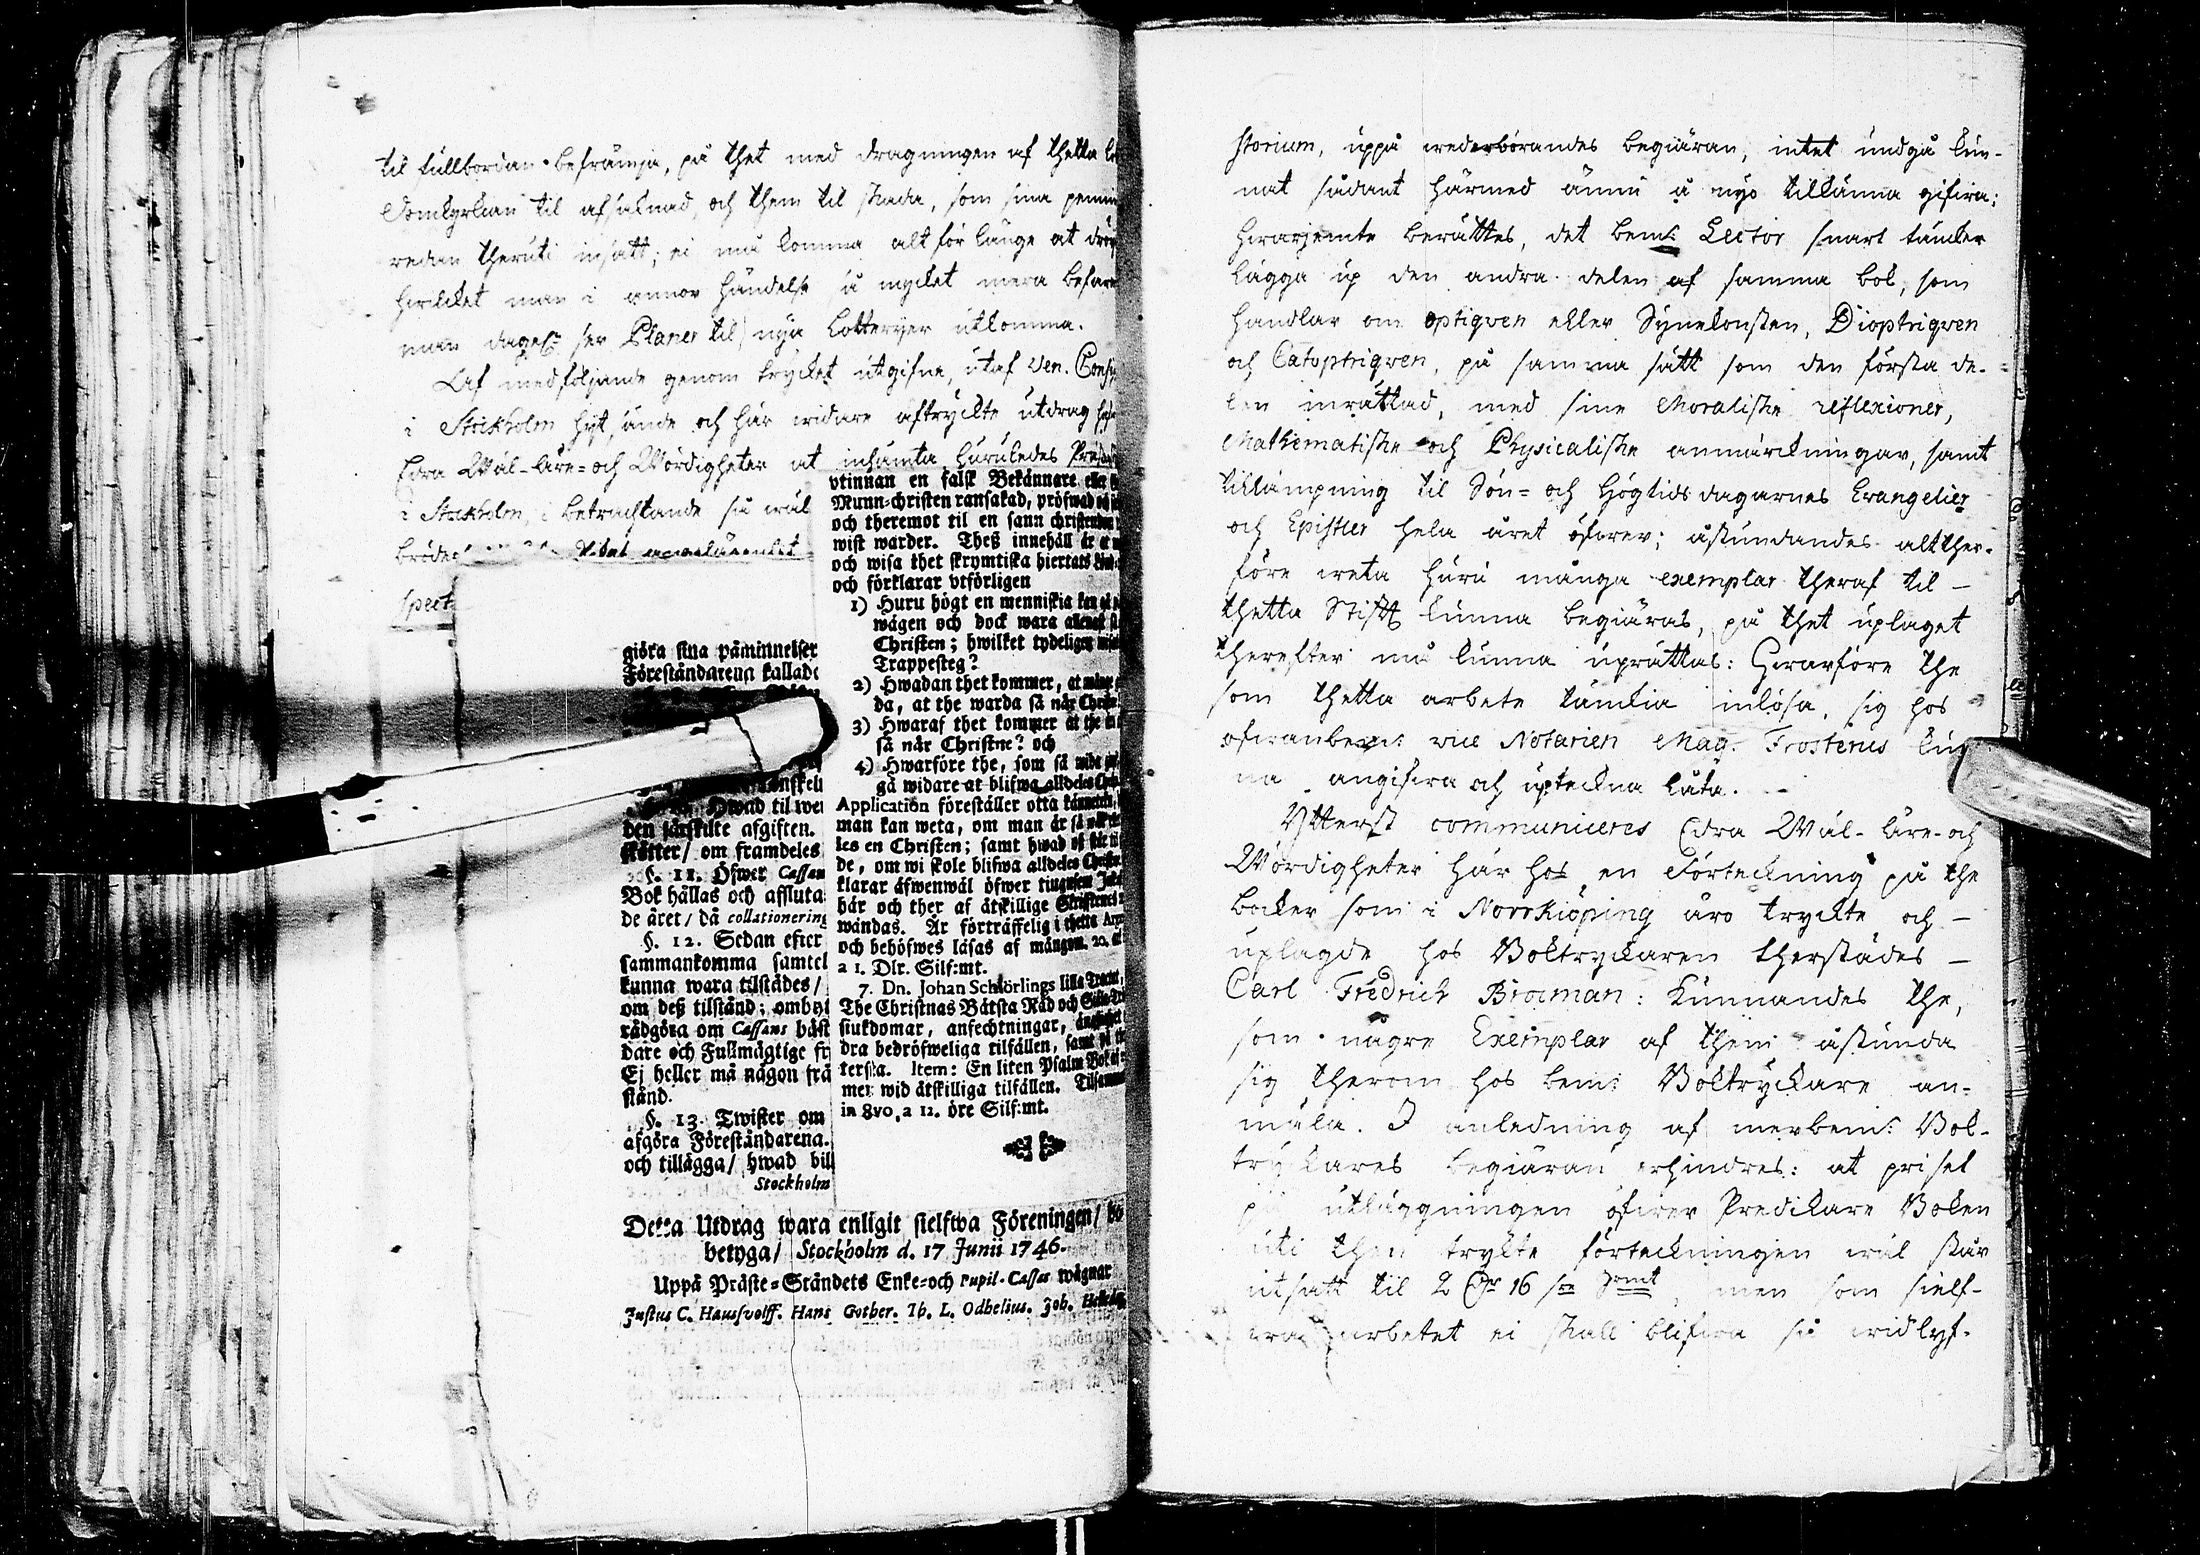 til fullbordan befrämja, på thet med dragningen af thetta
Domkyrkian til afsaknad, och them til skada, som sina
redan theruti insatt; ei må komma alt för länge at
hwilcket man i annor händelse så mycket mera
man dagel. ser Planer til nya Lotteryer utkomma.
Af medföljande genom trycket utgifne, utaf Ven.
i Stockholm hyt sände och här widare aftryckte utdrag
Edra Wäl-Äre- och Wördigheter at inhämta huruledes
i Stockholm, i betracktande så wäl
bröde
spect
giöra sina påminnelser
Föreståndarena kallade
Hwad til
den särskilte afgiften.
skötter/ om framdeles
§. 11. Öfwer Cassan
Bok hållas och affluta
de året/ då collationering
§. 12. Sedan efter
sammankomma samtel
kunna wara tilstädes/
om deß tilstånd; ombyt
rådgöra om Cassans bäst
dare och Fullmägtige fr
Ej heller må någon frå
stånd.
§. 13. Twister om
afgöra Föreståndarena.
och tillägga/ hwad bill
Stockholm
vtinnan en falsk Bekännare eller
Munn-christen ransakad, pröfwad
och theremot til en sann christendom
wist warder. Theß innehåll är
och wisa thet skrymtiska hiertats
och förklarar vtförligen
1) Huru högt en menniskia kan
wägen och dock wara allenast
Christen; hwilket tydeligen
Trappesteg?
2) Hwadan thet kommer, at månge
da, at the warda så när Christne
3) Hwaraf thet kommer at the
så när Christne? och
4) Hwarföre the, som så wida
gå widare at blifwa alldeles
Application föreställer otta kännetecken
man kan weta, om man är så
les en Christen; samt hwad
de, om wi skole blifwa alldeles Christne
klarar äfwenwäl öfwer tiugufem
här och ther af åtskillige Skriftenes
wändas. Är förträffelig i thetta
och behöfwes läsas af mången. 20.
a 1. Dlr. Silf:mt.
7. Dn. Johan Schlörlings lilla
The Christnas Bätsta Råd och
siukdomar, anfechtningar,
dra bedröfweliga tilfällen, samt
terska. Item: En liten Psalm Bok
mer wid åtskilliga tilfällen.
in 8vo, a 12. öre Silf:mt.
Detta Utdrag wara enligit sielfwa Föreningen/
betyga/ Stockholm d. 17 Junii 1746.
Uppå Präste-Ståndets Enke-och Pupil-Cassas wägnar
Justus C. Hausswolff. Hans Gother. Th. L. Odhelius. Joh.
storium, uppå wederbörandes begiäran, intet undgå kun-
nat sådant härmed ännu å nyo tilkänna gifwa;
hwarjemte berättes, det bem: Lector snart täncker
lägga up den andra delen af samma bok, som
handlar om optiqven eller Synekonsten, Dioptriqven
och Catoptriqven, på samma sätt som den första de-
len inrättad, med sine Moraliske reflexioner,
Mathematiske och Physicaliske anmärckningar, samt
tillämpning til Sön- och Högtids dagarnes Evangelier
och Epistler hela året öfwer; åstundandes altther-
före weta huru många exemplar theraf til
thetta Stift kunna begiäras, på thet uplaget
therefter må kunna uprättas: Hwarföre the
som thetta arbete täncka inlösa, sig hos
ofwanbem: vice Notarien Mag. Frosterus kun-
na angifwa och upteckna låta.
Ytterst communiceres Edra Wäl-Äre- och
Wördigheter här hos en Förteckning på the
böcker som i Norrkiöping äro tryckte och
uplagde hos Boktryckaren therstädes
Carl Fredrich Broman: kunnandes the,
som någre Exemplar af them åstunda
sig therom hos bem: Boktryckare an-
mäla. I anledning af merbem: Bok-
tryckares begiäran erhindres: at priset
på utläggningen öfwer Predikare Boken
uti then tryckte förteckningen wäl står
utsatt til 2 16 men som sielf-
wa arbetet ei skall blifwa så widlyf-